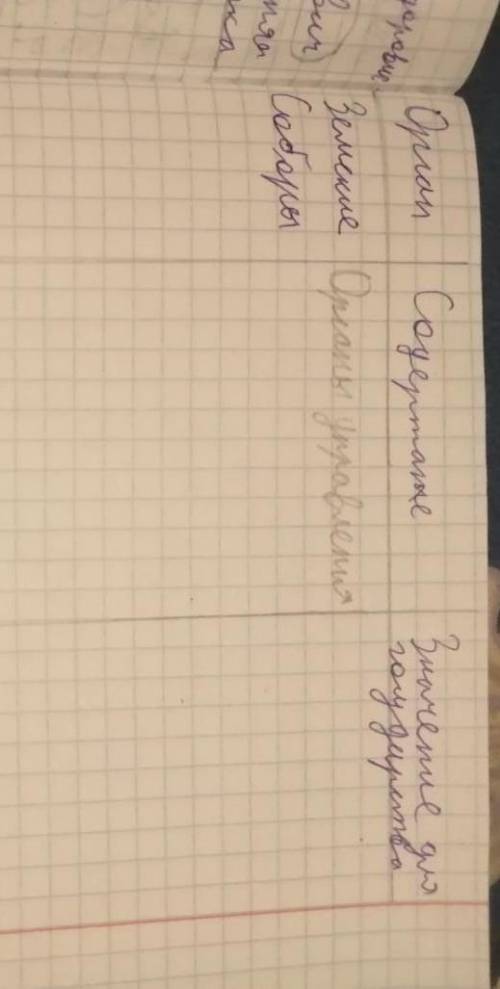 Орган
Содержание
Значение для
государства
Земские
Соборы
Органы управления